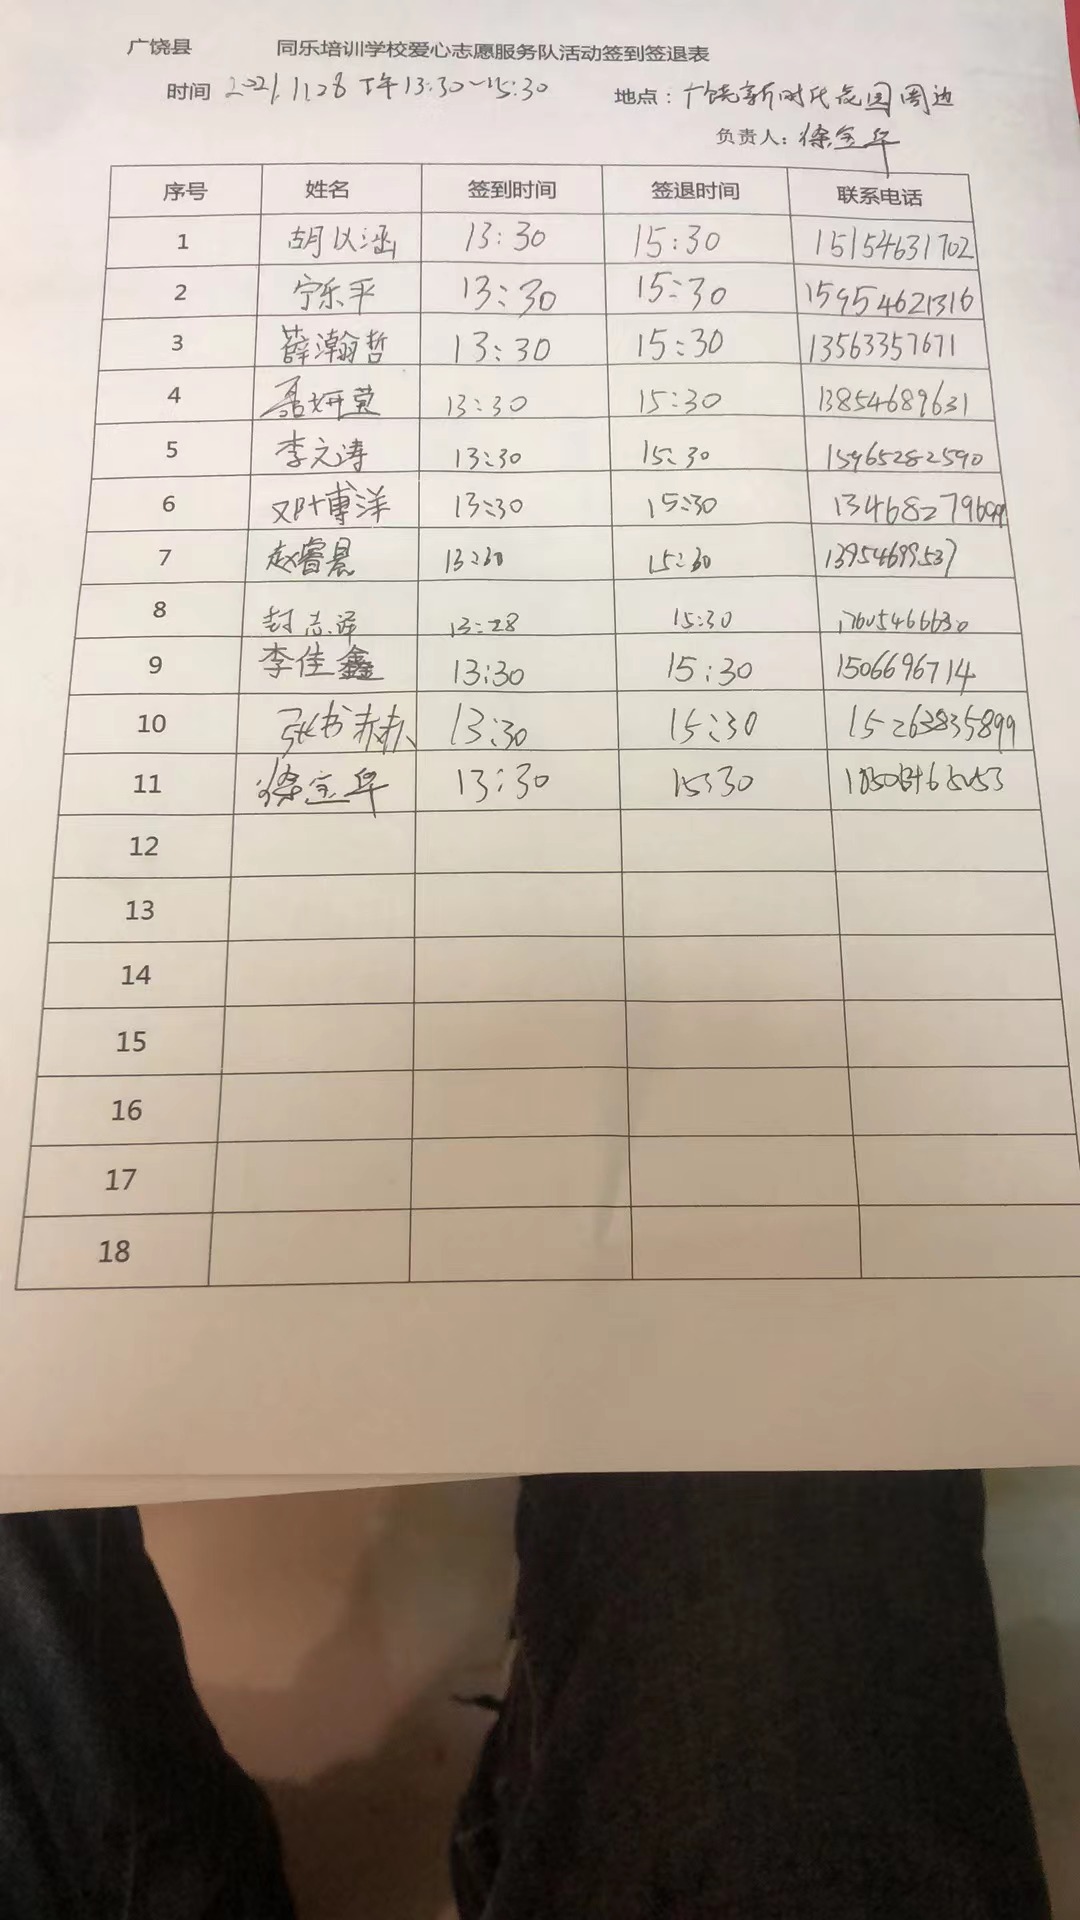 广饶县 同乐培训学校爱心志愿服务队活动签到签退表
时间 2021.11.28 下午13:30~15:30 地点：广饶新时代花园周边
负责人：徐宝华
序号 姓名 签到时间 签退时间 联系电话
1 胡以涵 13:30 15:30 15154631702
2 宁乐平 13:30 15:30 15954621316
3 薛瀚哲 13:30 15:30 13563357671
4 聂妍莹 13:30 15:30 13854689631
5 李文涛 13:30 15:30 15965282590
6 邓博洋 13:30 15:30
7 赵睿晨 13:30 15:30 13954699537
8 封志泽 13:28 15:30 17605466630
9 李佳鑫 13:30 15:30 1506696714
10 张书赫 13:30 15:30 15263835899
11 徐宝华 13:30 15:30
12
13
14
15
16
17
18